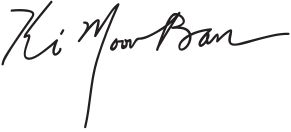 Ki Moon Ban